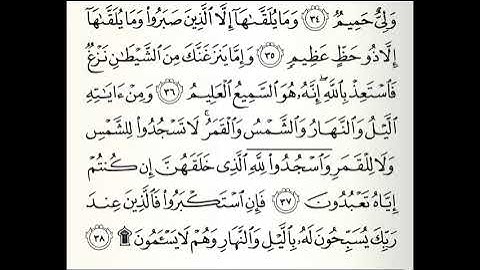 وَلِىٌّ حَمِيمٌ ٣٤ وَمَا يُلَقَّىٰهَآ إِلَّا ٱلَّذِينَ صَبَرُوا۟ وَمَا يُلَقَّىٰهَآ
إِلَّا ذُو حَظٍّ عَظِيمٍ ٣٥ وَإِمَّا يَنزَغَنَّكَ مِنَ ٱلشَّيْطَـٰنِ نَزْغٌ
فَٱسْتَعِذْ بِٱللَّهِ ۖ إِنَّهُۥ هُوَ ٱلسَّمِيعُ ٱلْعَلِيمُ ٣٦ وَمِنْ ءَايَـٰتِهِ
ٱلَّيْلُ وَٱلنَّهَارُ وَٱلشَّمْسُ وَٱلْقَمَرُ ۚ لَا تَسْجُدُوا۟ لِلشَّمْسِ
وَلَا لِلْقَمَرِ وَٱسْجُدُوا۟ لِلَّهِ ٱلَّذِى خَلَقَهُنَّ إِن كُنتُمْ
إِيَّاهُ تَعْبُدُونَ ٣٧ فَإِنِ ٱسْتَكْبَرُوا۟ فَٱلَّذِينَ عِندَ
رَبِّكَ يُسَبِّحُونَ لَهُۥ بِٱلَّيْلِ وَٱلنَّهَارِ وَهُمْ لَا يَسْـَٔمُونَ ۩ ٣٨